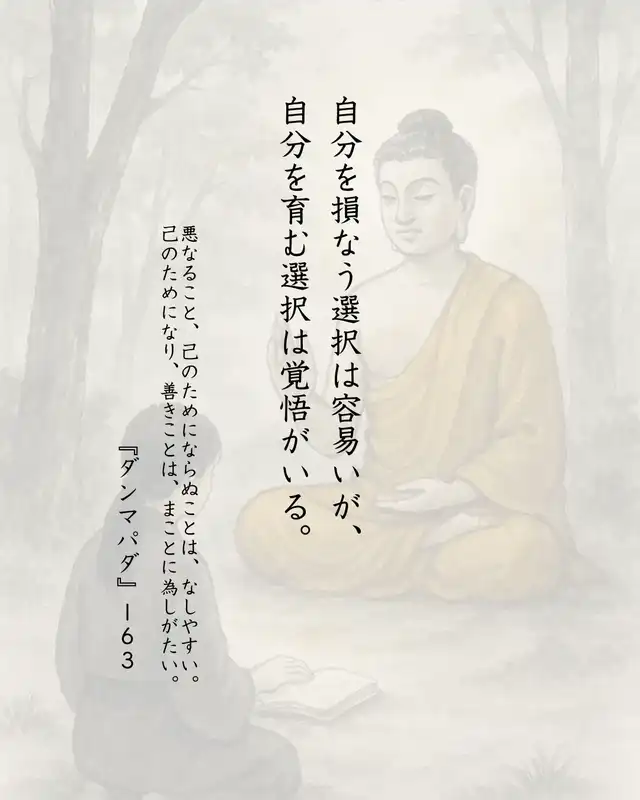 自分を損なう選択は容易いが、
自分を育む選択は覚悟がいる。
悪なること、己のためにならぬことは、なしやすい。
己のためになり、善きことは、まことに為しがたい。
『ダンマパダ』ー63